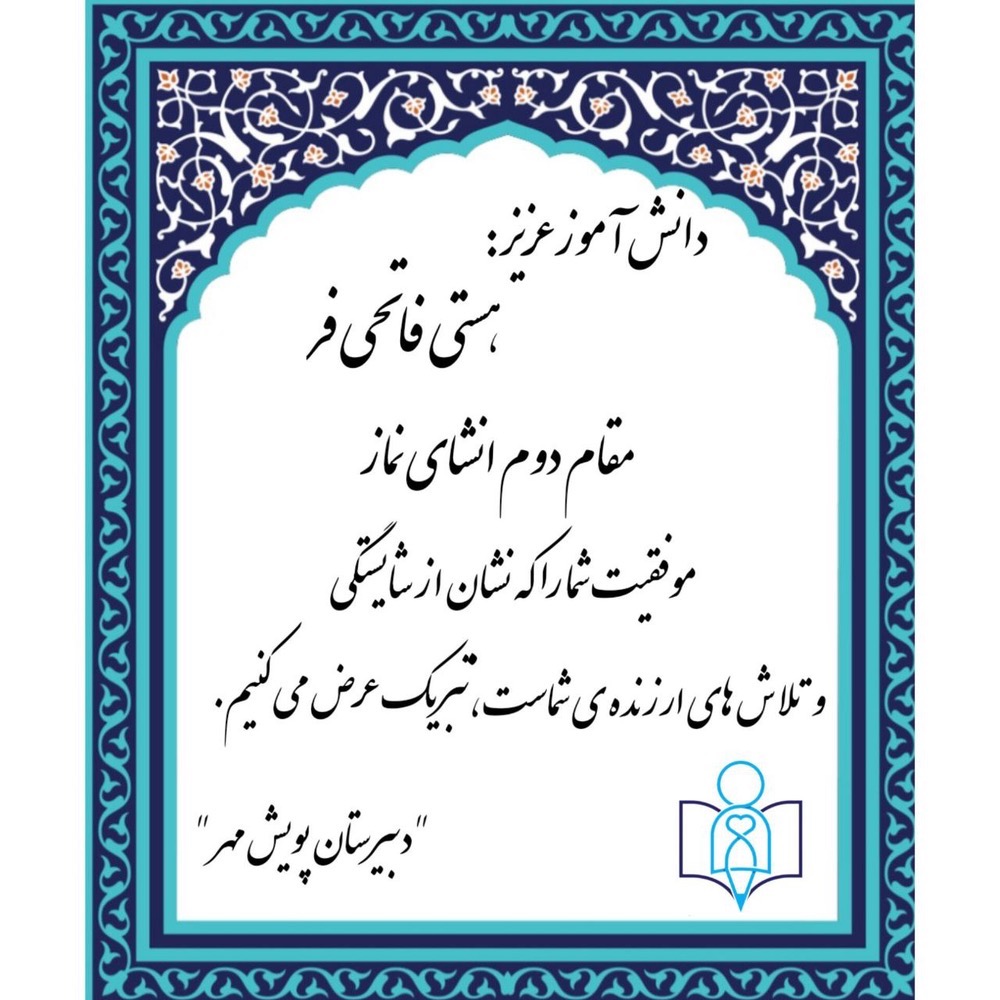 دانش آموز عزیز:
هستی فاتحی فر
مقام دوم انشای نماز
موفقیت شما را که نشان از شایستگی
و تلاش های ارزنده ی شماست، تبریک عرض می کنیم.
"دبیرستان پویش مهر"